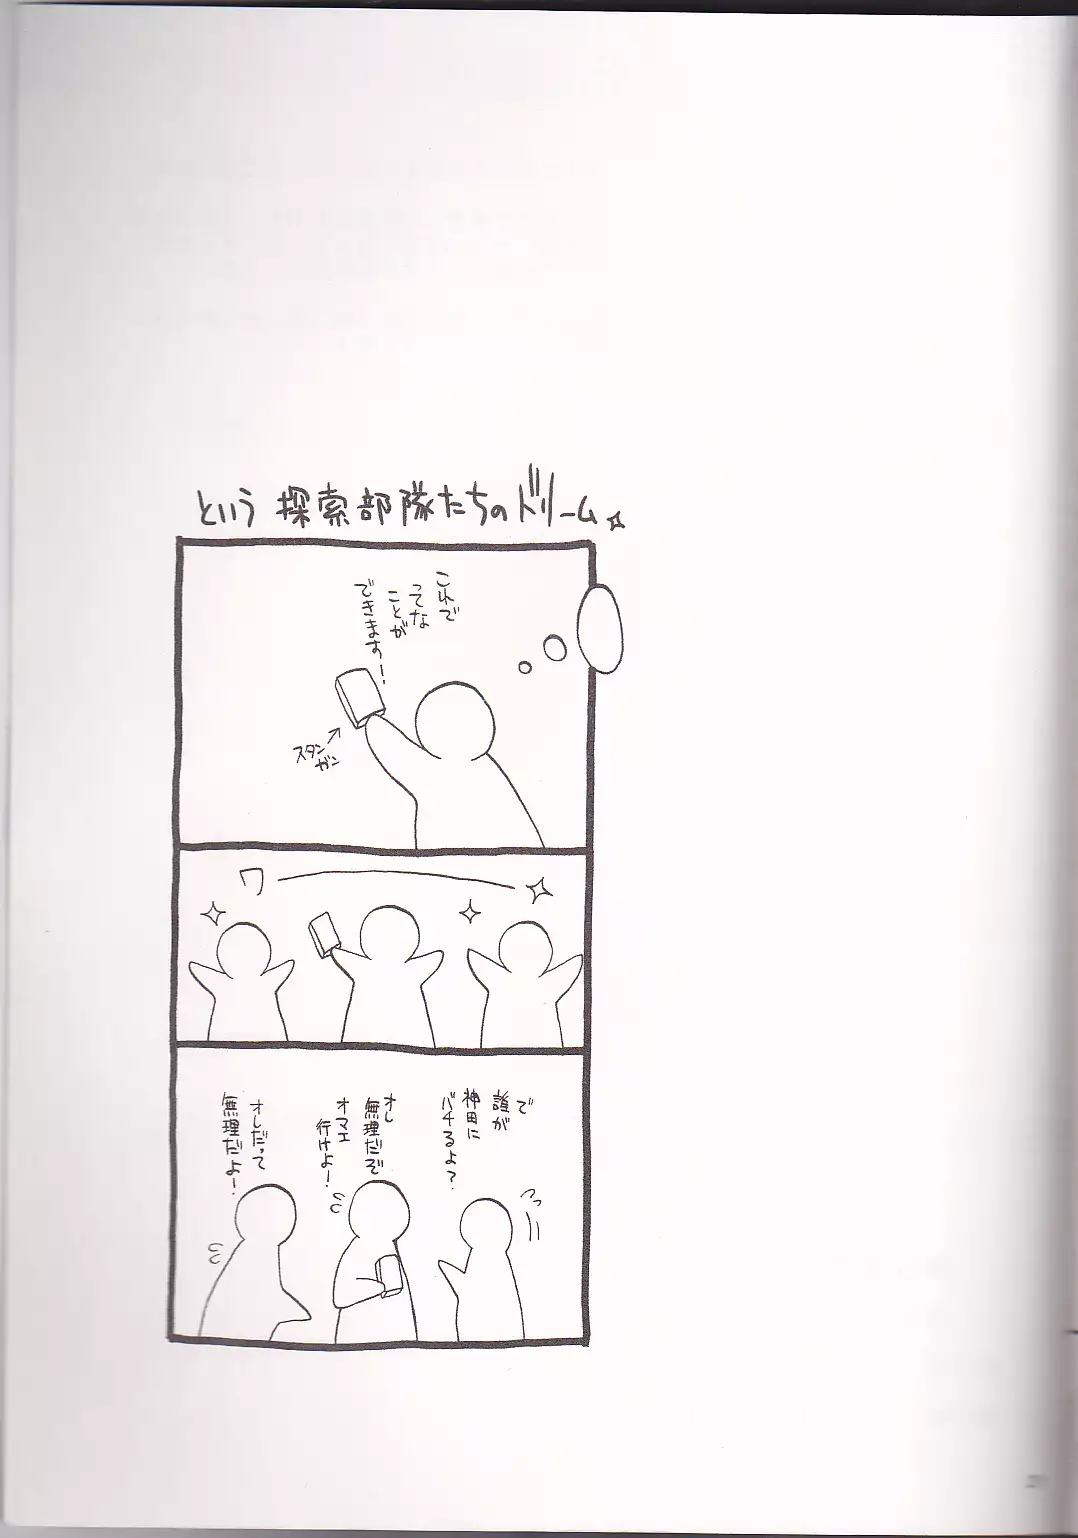 という探索部隊たちのドリーム
これで
ってな
ことが
できます!
スタン
ガン
ワ
で
誰が
神田に
バチるよ?
オレ
無理だぞ
オマエ
行けよ!
オレだって
無理だよ!